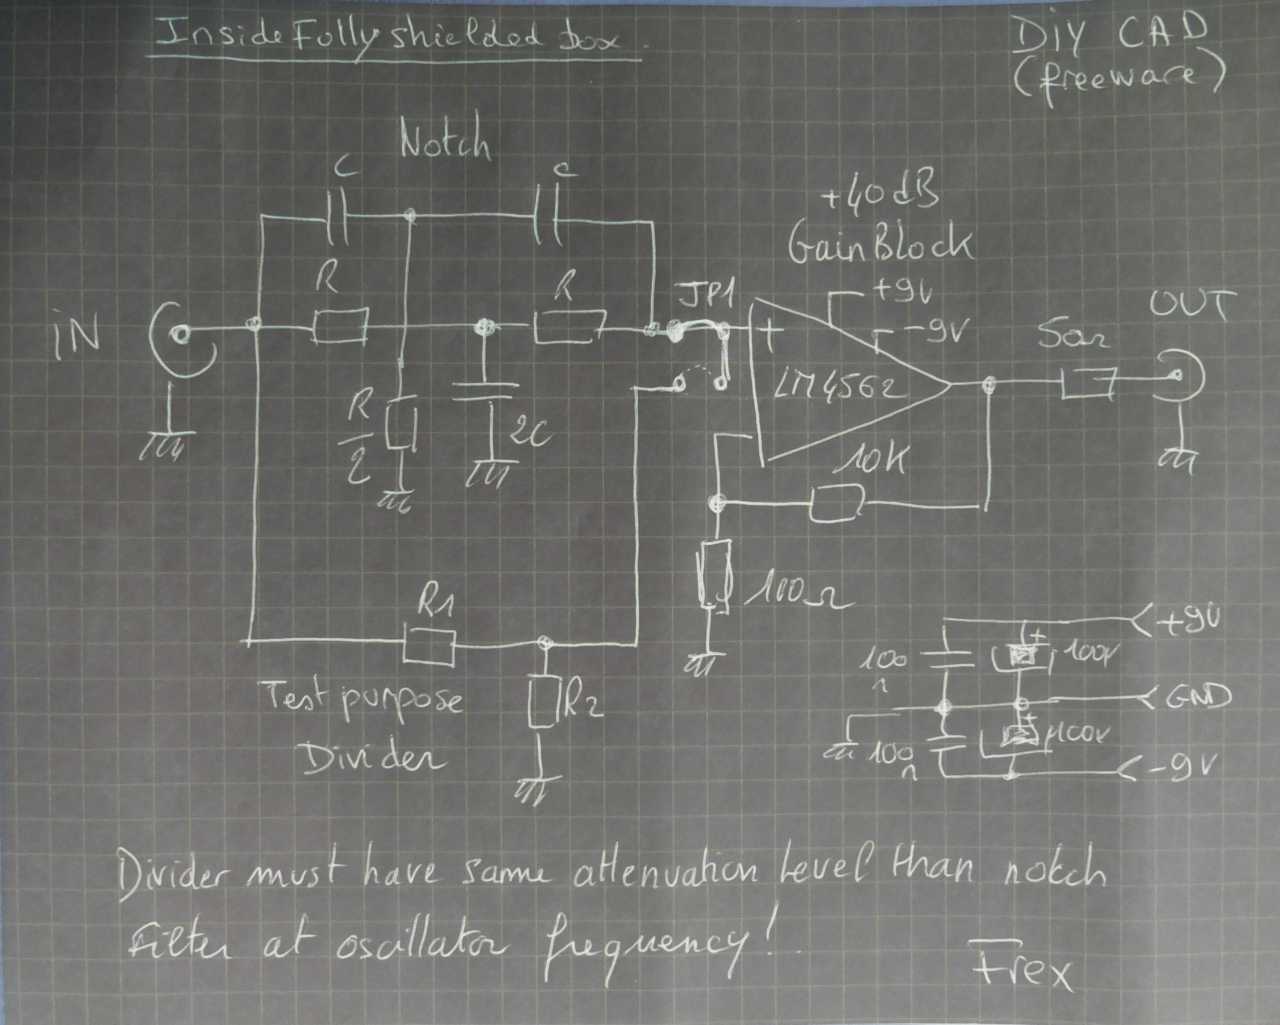 Inside Fully shielded box.
DiY CAD
(freeware)
Notch
C
C
+40dB
GainBlock
R
R
JP1
+9V
-9V
OUT
iN
50Ω
+
LM4562
R
2
2C
10K
R1
100Ω
+9V
100
n
+
Test purpose
R2
GND
Divider
+
100
n
-9V
Divider must have same attenuation Level than notch
Filter at oscillator frequency!
Frex